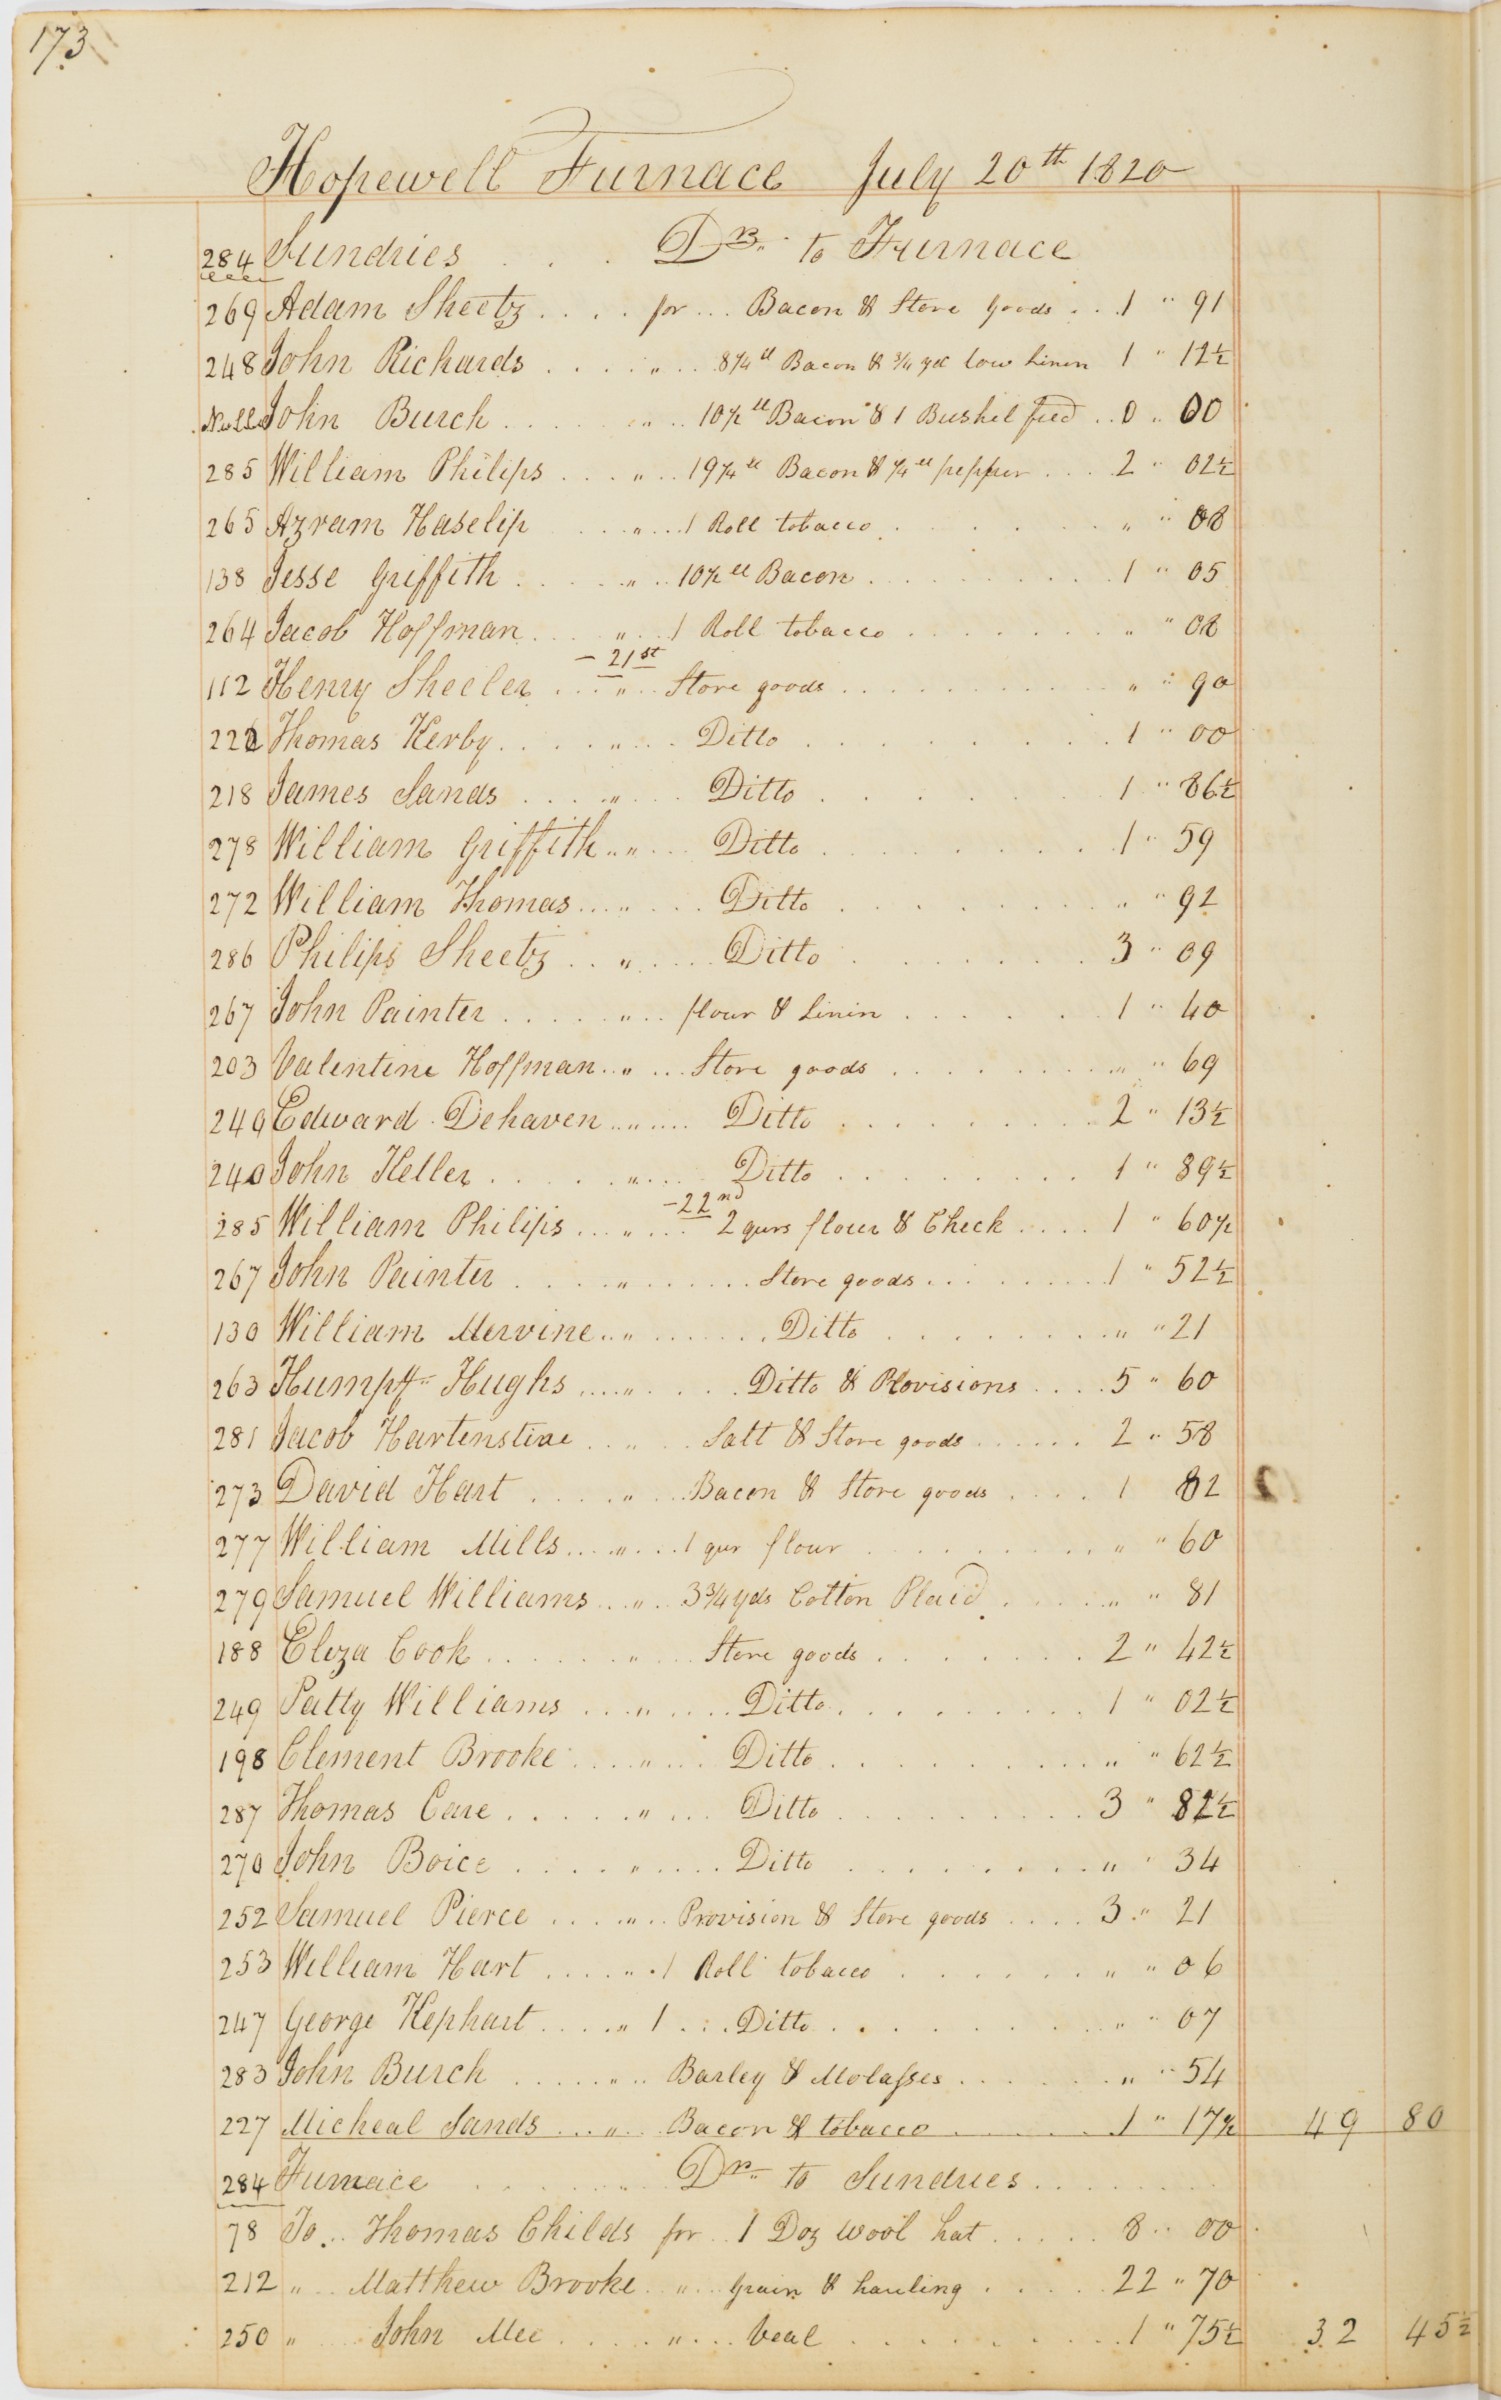 173
Hopewell Furnace July 20th 1820
284 Sundries . . . Dr. to Furnace
269 Adam Sheetz . . . . for . . . Bacon & Store goods . . . 1 " 91
248 John Richards . . . . " . . . 8 1/4 lb Bacon & 3/4 yd tow Linen 1 " 12 1/2
Null John Burch . . . . " . . 10 1/2 lb Bacon & 1 Bushel feed . . 0 " 00
285 William Philips . . . " . . 19 1/4 lb Bacon & 1/4 lb pepper . . . 2 " 02 1/2
265 Azram Haselip . . " . . . 1 Roll tobacco . . . . . " " 08
138 Jesse Griffith . . . . " . . 10 1/2 lb Bacon . . . . . . 1 " 05
264 Jacob Hoffman . . . " . . 1 Roll tobacco . . . . . . " " 08
– 21st
112 Henry Sheeler . . . " . . Store goods . . . . . . " " 90
222 Thomas Kerby . . . . " . . . Ditto . . . . . . 1 " 00
218 James Sands . . . . " . . . Ditto . . . . . . 1 " 86 1/2
278 William Griffith . . " . . . Ditto . . . . . . 1 " 59
272 William Thomas . . . " . . . Ditto . . . . . . " " 92
286 Philips Sheetz . . " . . . . Ditto . . . . . . 3 " 09
267 John Painter . . . . . " . . flour & Linin . . . . . 1 " 40
203 Valentine Hoffman . . " . . . Store goods . . . . . . " " 69
249 Edward Dehaven . . . " . . . Ditto . . . . . . 2 " 13 1/2
240 John Keller . . . . . " . . . Ditto . . . . . . 1 " 89 1/2
– 22nd
285 William Philips . . . " . . . 2 qurs flour & Check . . . . 1 " 60 1/2
267 John Painter . . . . " . . . . . Store goods . . . . . 1 " 52 1/2
130 William Mervine . . " . . . . . . Ditto . . . . . . " " 21
263 Humpy Hughs . . . . " . . . . Ditto & Provisions . . . . 5 " 60
281 Jacob Hartenstine . . " . . Salt & Store goods . . . . . 2 " 58
273 David Hart . . . . " . . Bacon & Store goods . . . . 1 82
277 William Mills . . . . " . . . 1 qur flour . . . . . . " " 60
279 Samuel Williams . . . " . . 3 3/4 yds Cotton Plaid . . . . " " 81
188 Eliza Cook . . . . . " . . Store goods . . . . . . 2 " 42 1/2
249 Patty Williams . . . " . . . . Ditto . . . . . . 1 " 02 1/2
198 Clement Brooke . . . " . . . Ditto . . . . . . " " 62 1/2
287 Thomas Care . . . . . " . . . Ditto . . . . . . 3 " 82 1/2
270 John Boice . . . . . " . . . . Ditto . . . . . . " " 34
252 Samuel Pierce . . . . " . . Provision & Store goods . . . . 3 " 21
253 William Hart . . . . . " . 1 Roll tobacco . . . . . . " " 06
247 George Kephart . . . . " 1 . . . Ditto . . . . . . " " 07
283 John Burch . . . . . " . . Barley & Molasses . . . . . " " 54
227 Micheal Sands . . . " . . Bacon & tobacco . . . . 1 " 17 1/2 49 80
284 Furnace . . . . . Dr. to Sundries . . . . . .
78 To . . Thomas Childs for . . 1 Doz wool hat . . . . . 8 " 00
212 " . . Matthew Brooke . " . . grain & hauling . . . . 22 " 70
250 " . . . John Mee . . . . . " . . . Veal . . . . . . 1 " 75 1/2 32 45 1/2